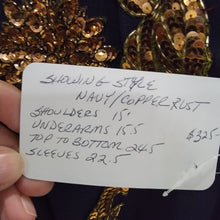 SHOWING STYLE
NAVY/COPPER RUST
SHOULDERS 15"
UNDERARMS 15.5
$325
TOP TO BOTTOM 24.5
SLEEVES 22.5